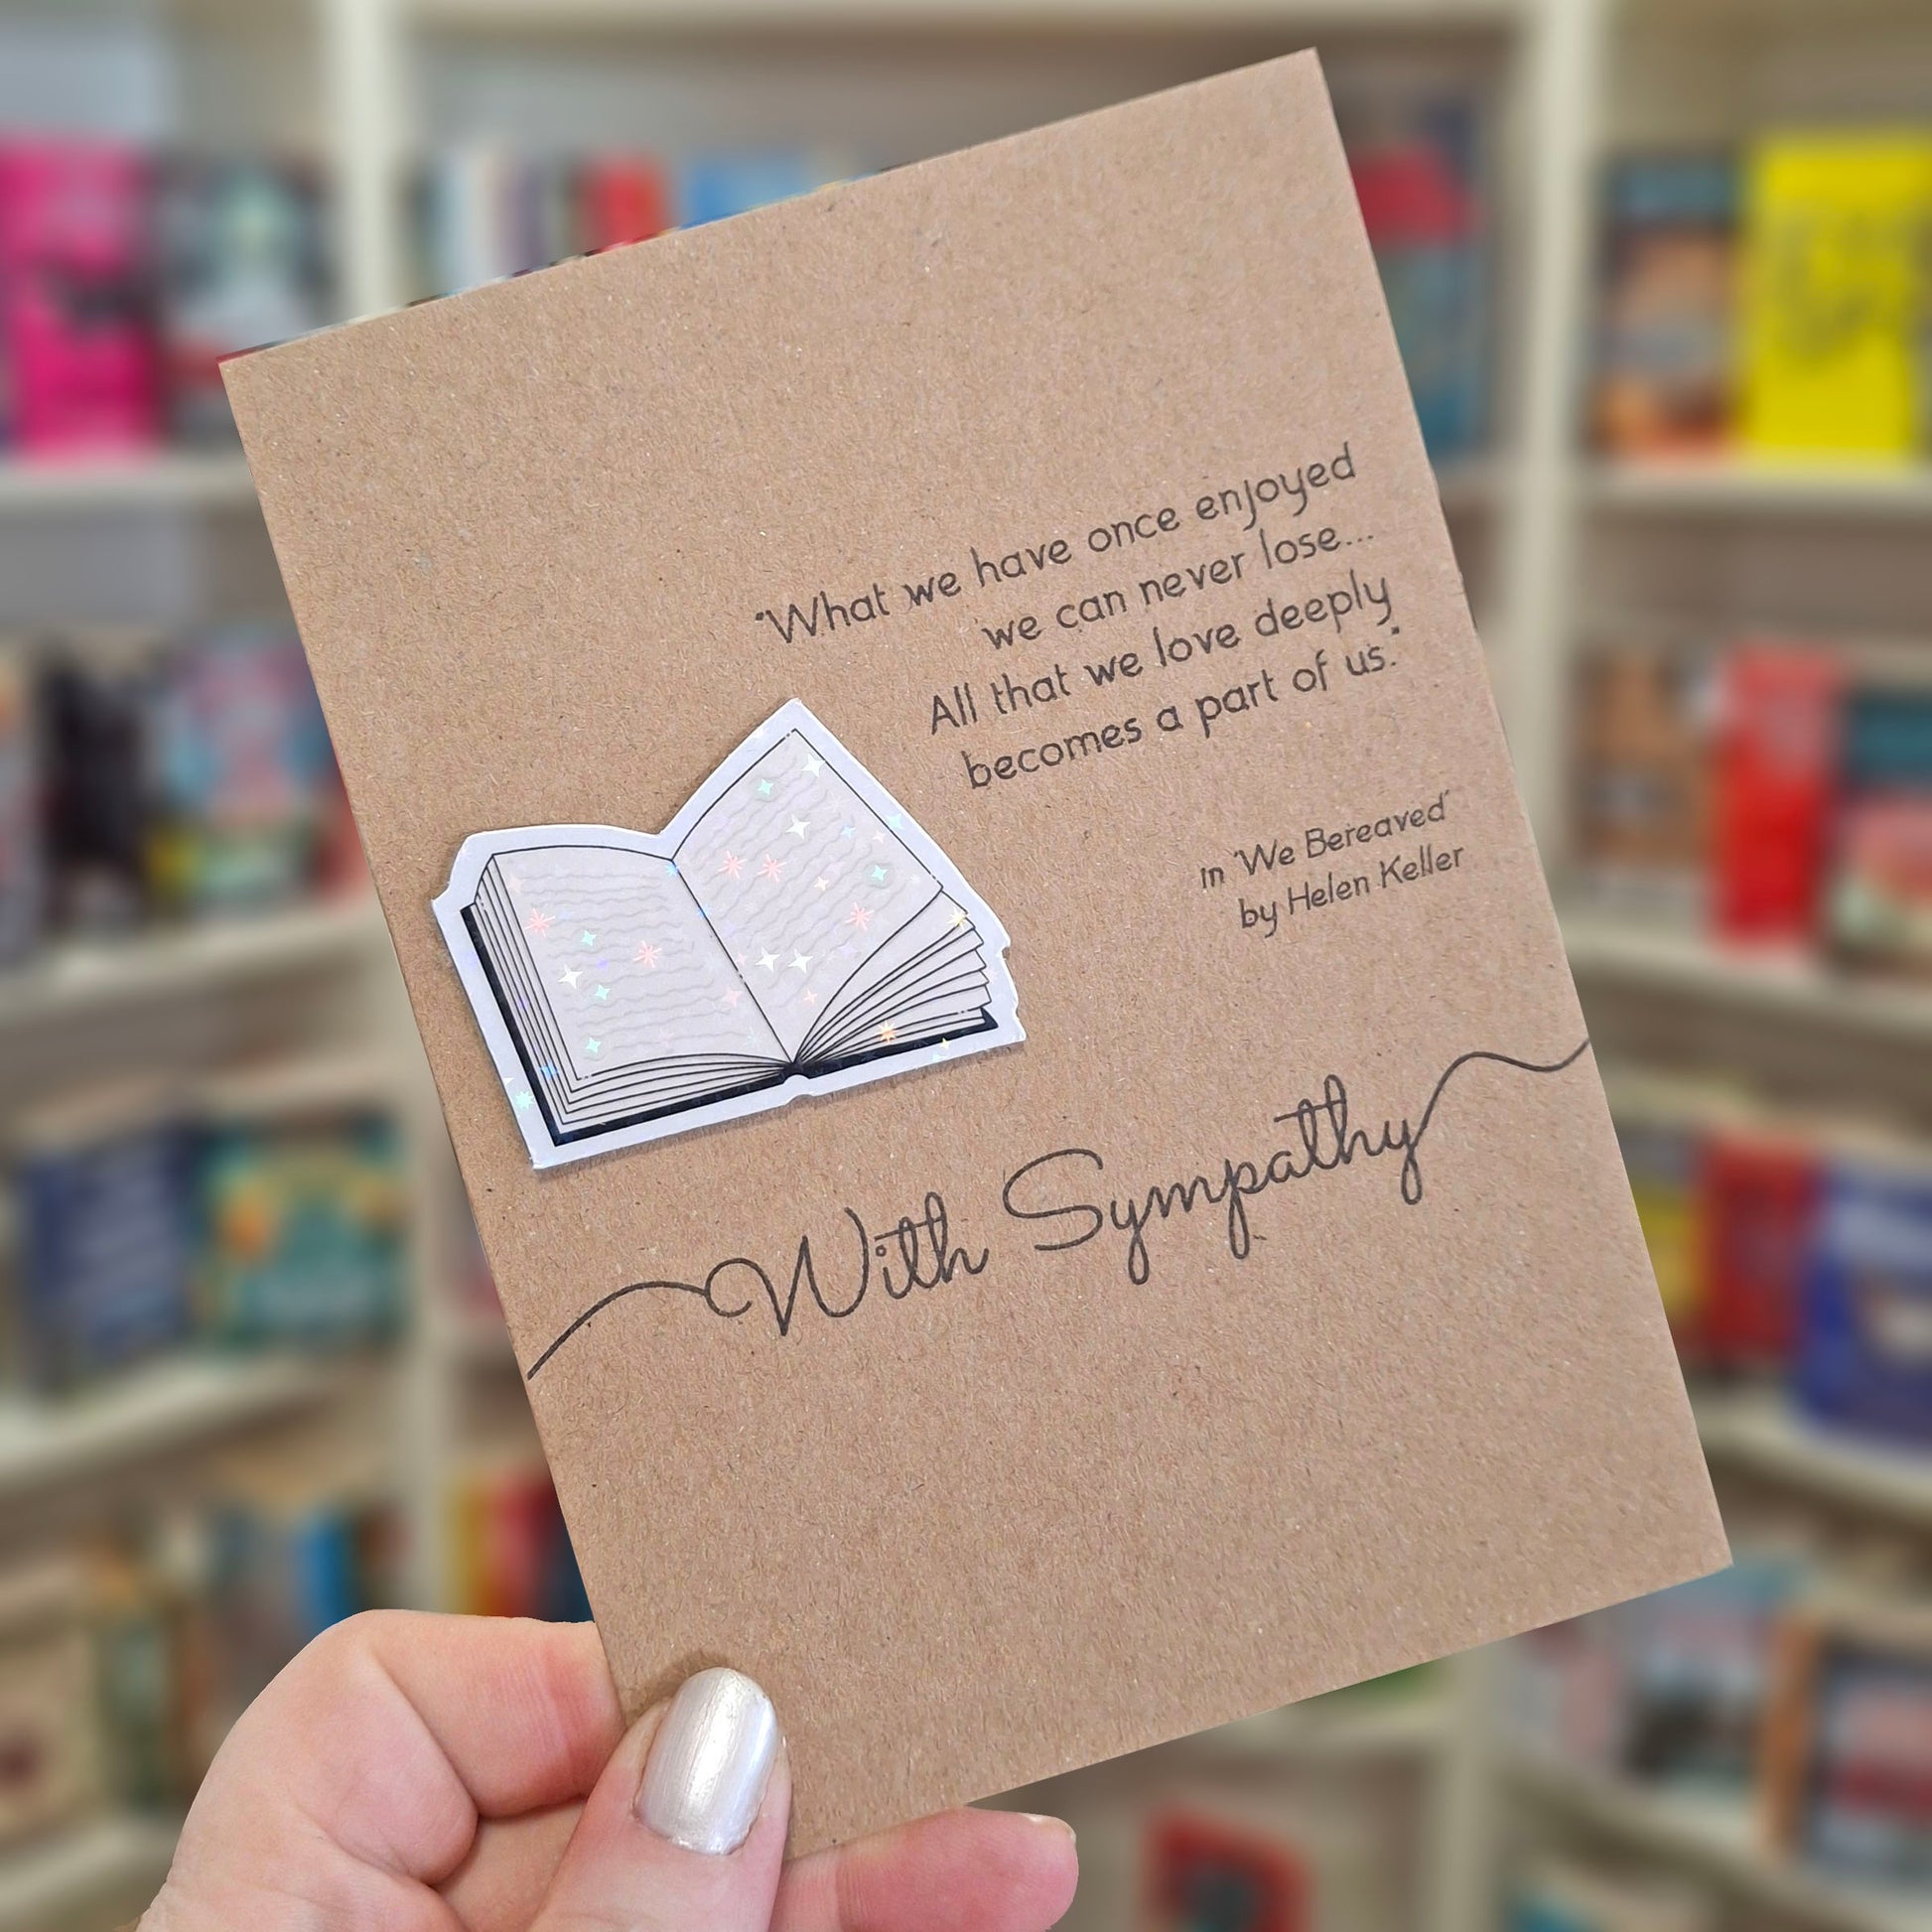 "What we have once enjoyed
we can never lose...
All that we love deeply
becomes a part of us."
in 'We Bereaved'
by Helen Keller
With Sympathy